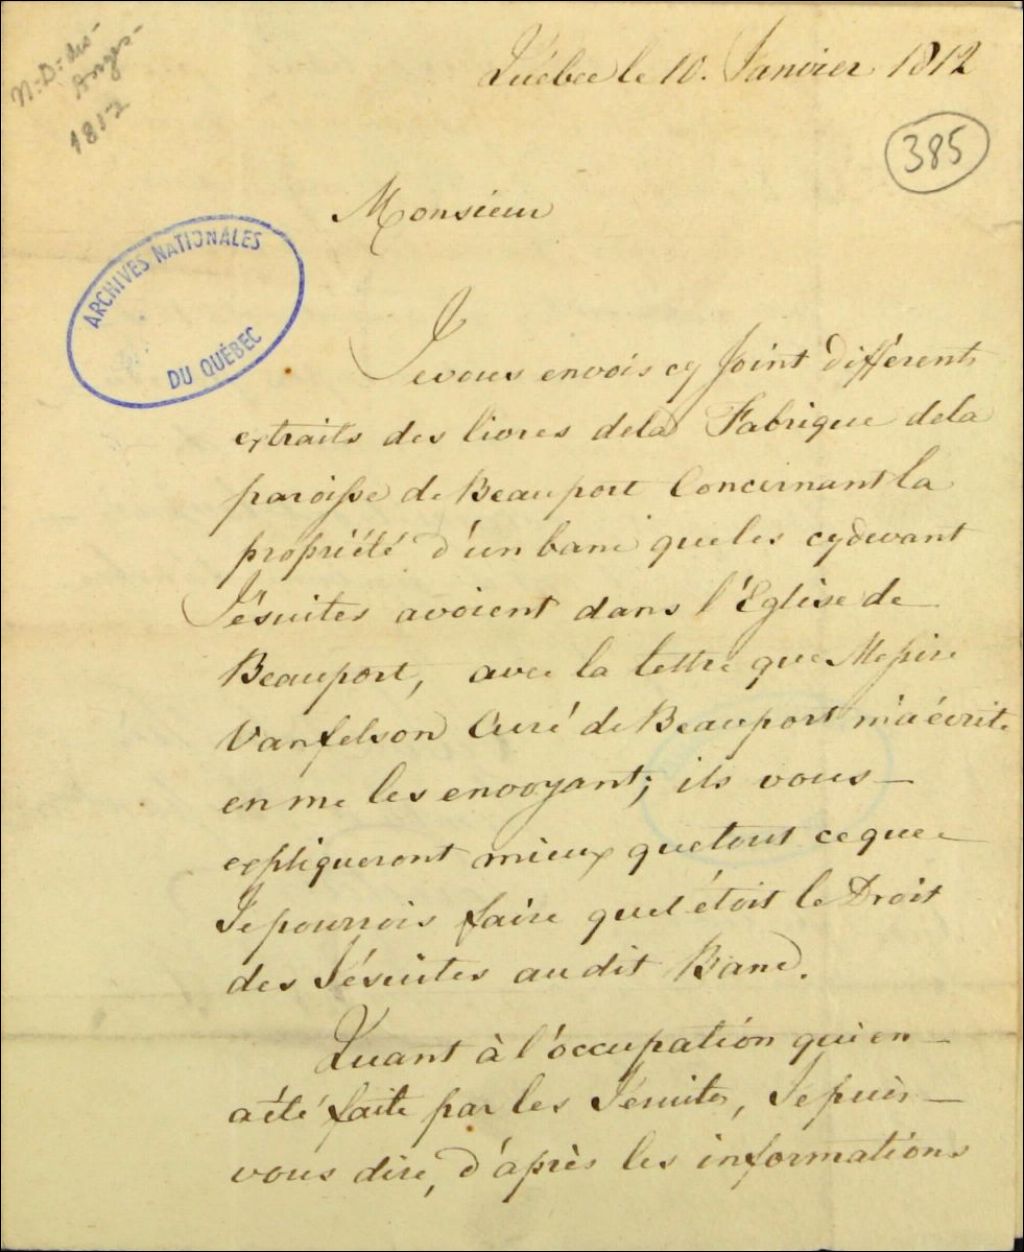 N: D: des-
Anges-
1812
Québec le 10. Janvier 1812
385
Monsieur
ARCHIVES NATIONALES
DU QUÉBEC
Je vous envois cy Joint différents
extraits des livres dela Fabrique dela
paroisse de Beauport Concernant la
propriété d'un banc que les cydevant
Jésuites avoient dans l'Eglise de
Beauport, avec la lettre que Messire
Vanfelson Curé de Beauport m'a écrite
en me les envoyant; ils vous
expliqueront mieux que tout ce que
Je pourrois faire quel étoit le Droit
des Jésuites au dit Banc.
Quant à l'occupation qui en
a été faite par les Jésuites, Je puis
vous dire, d'après les informations